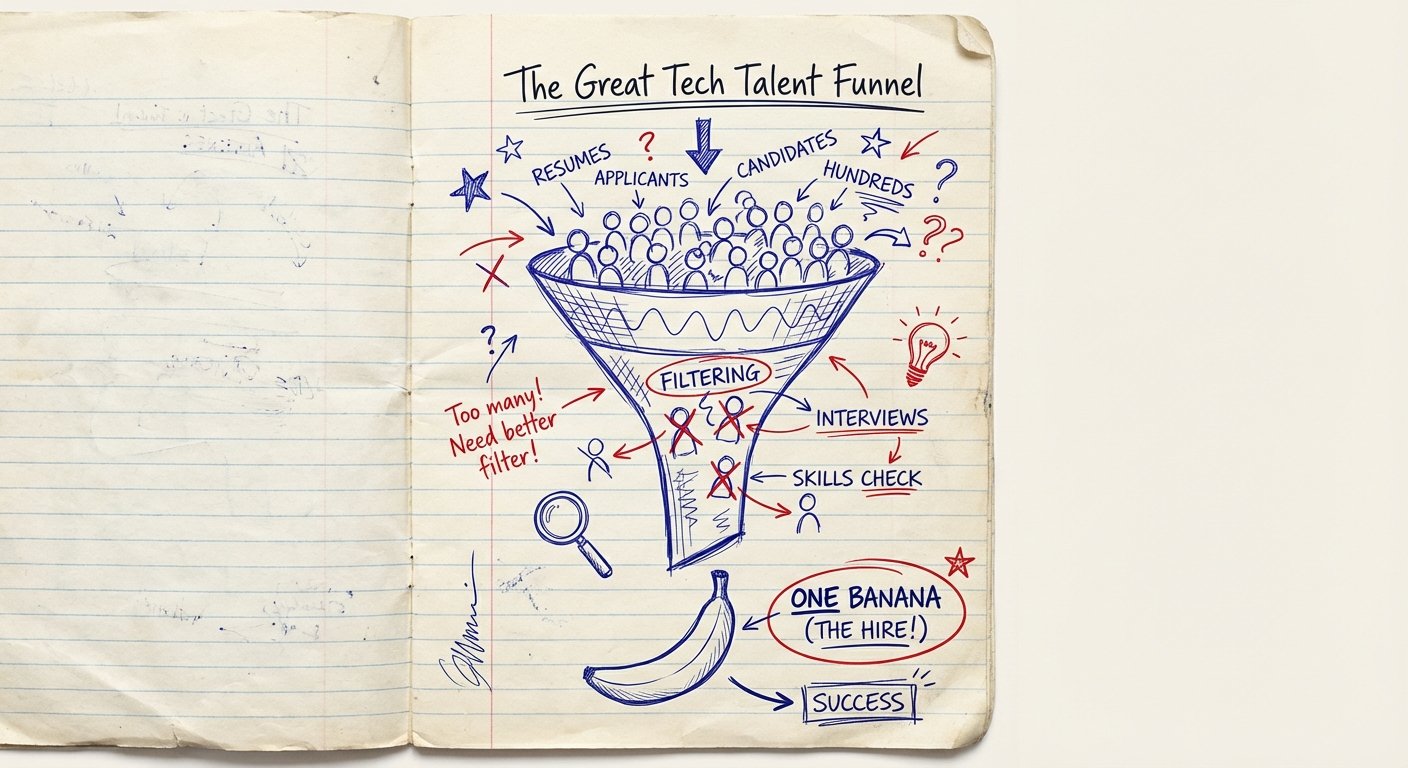 The Great Tech Talent Funnel
?
RESUMES
APPLICANTS
CANDIDATES
HUNDREDS
?
??
?
FILTERING
Too many!
Need better
filter!
INTERVIEWS
SKILLS CHECK
ONE BANANA
(THE HIRE!)
SUCCESS